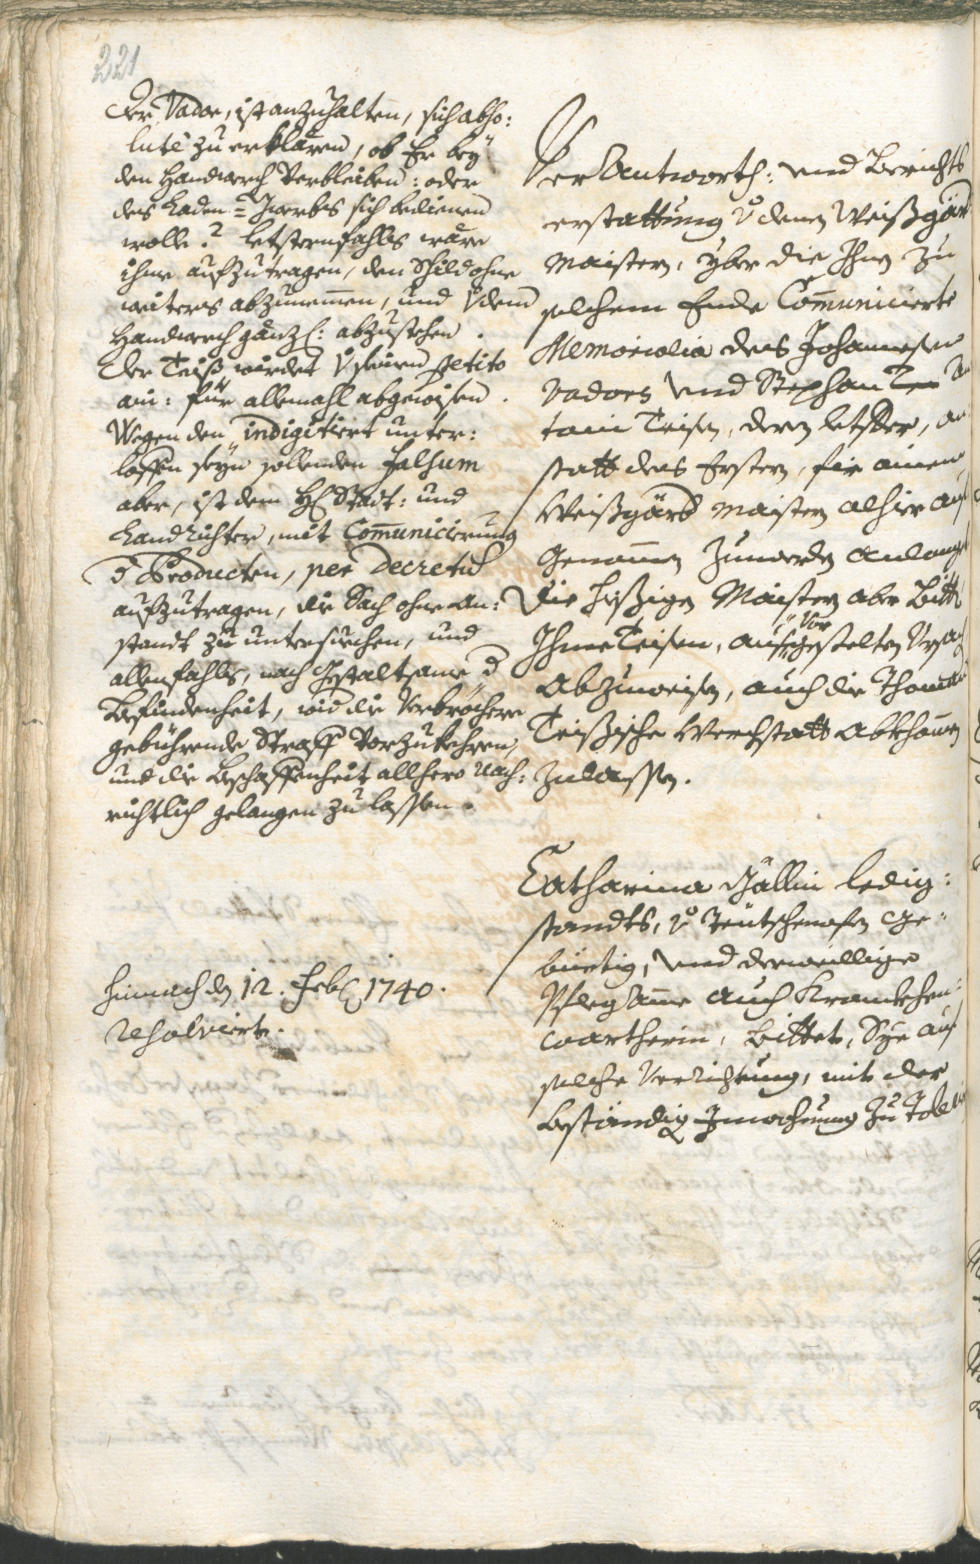 221
Der Vador, ist anzuhalten, sich abso:
lutè zu erklären, ob Er bey
den Handwerch Verbleiben: oder
des Laden=Gwerbs sich bedienen
wolle? letsternfahls wäre
ihme aufzutragen, den Schild ohne
weiters abzunemmen, und v dem
Handwerch gänzl: abzustehen.
Der Teiß wirdet v seinem petito
ain: für allemahl abgewisen.
Wegen den indigitiert unter:
loffen seyn sollenden Falsum
aber, ist dem H Statt: und
Landrichter, mit Communicierung
d Producten, per Decretum
aufzutragen, die Sach ohne An:
standt zu untersuechen, und
allenfahls, nach Gstaltsame d
Befindenheit, wid die Verbröchere
gebührende Straff Vorzukehren,
und die Beschaffenheit allhero Nach:
richtlich gelangen zu lassen.
Verantworth: und Berichts
erstattung v denen Weißgärb
Maistern, yber die Ihne zu
solchem Ende Communicierte
Memorialia des Johannesen
Vadors und Stephan
Teisen, deren letster, an
statt des Ersten, für ainen
Weißgärb Maister alhier auf
Genommen zuwerden anlanget
Die hießigen Maister aber Bitten
Ihme Teisen, aus Vor gestelten Ursachen
Abzuweisen, auch die
Teißische Werchstatt Abkhommen
zulassen.
Catharina Gällin ledig:
standts, v Teutschenofen ge:
bürtig, und derweillige
Pfleg Amme auch Krankhen:
wartherin, bittet, Sye auf
solche Verrichtung, mit der
beständig Inwohnung zu
hinnach den 12. Feb 1740.
resolviert.